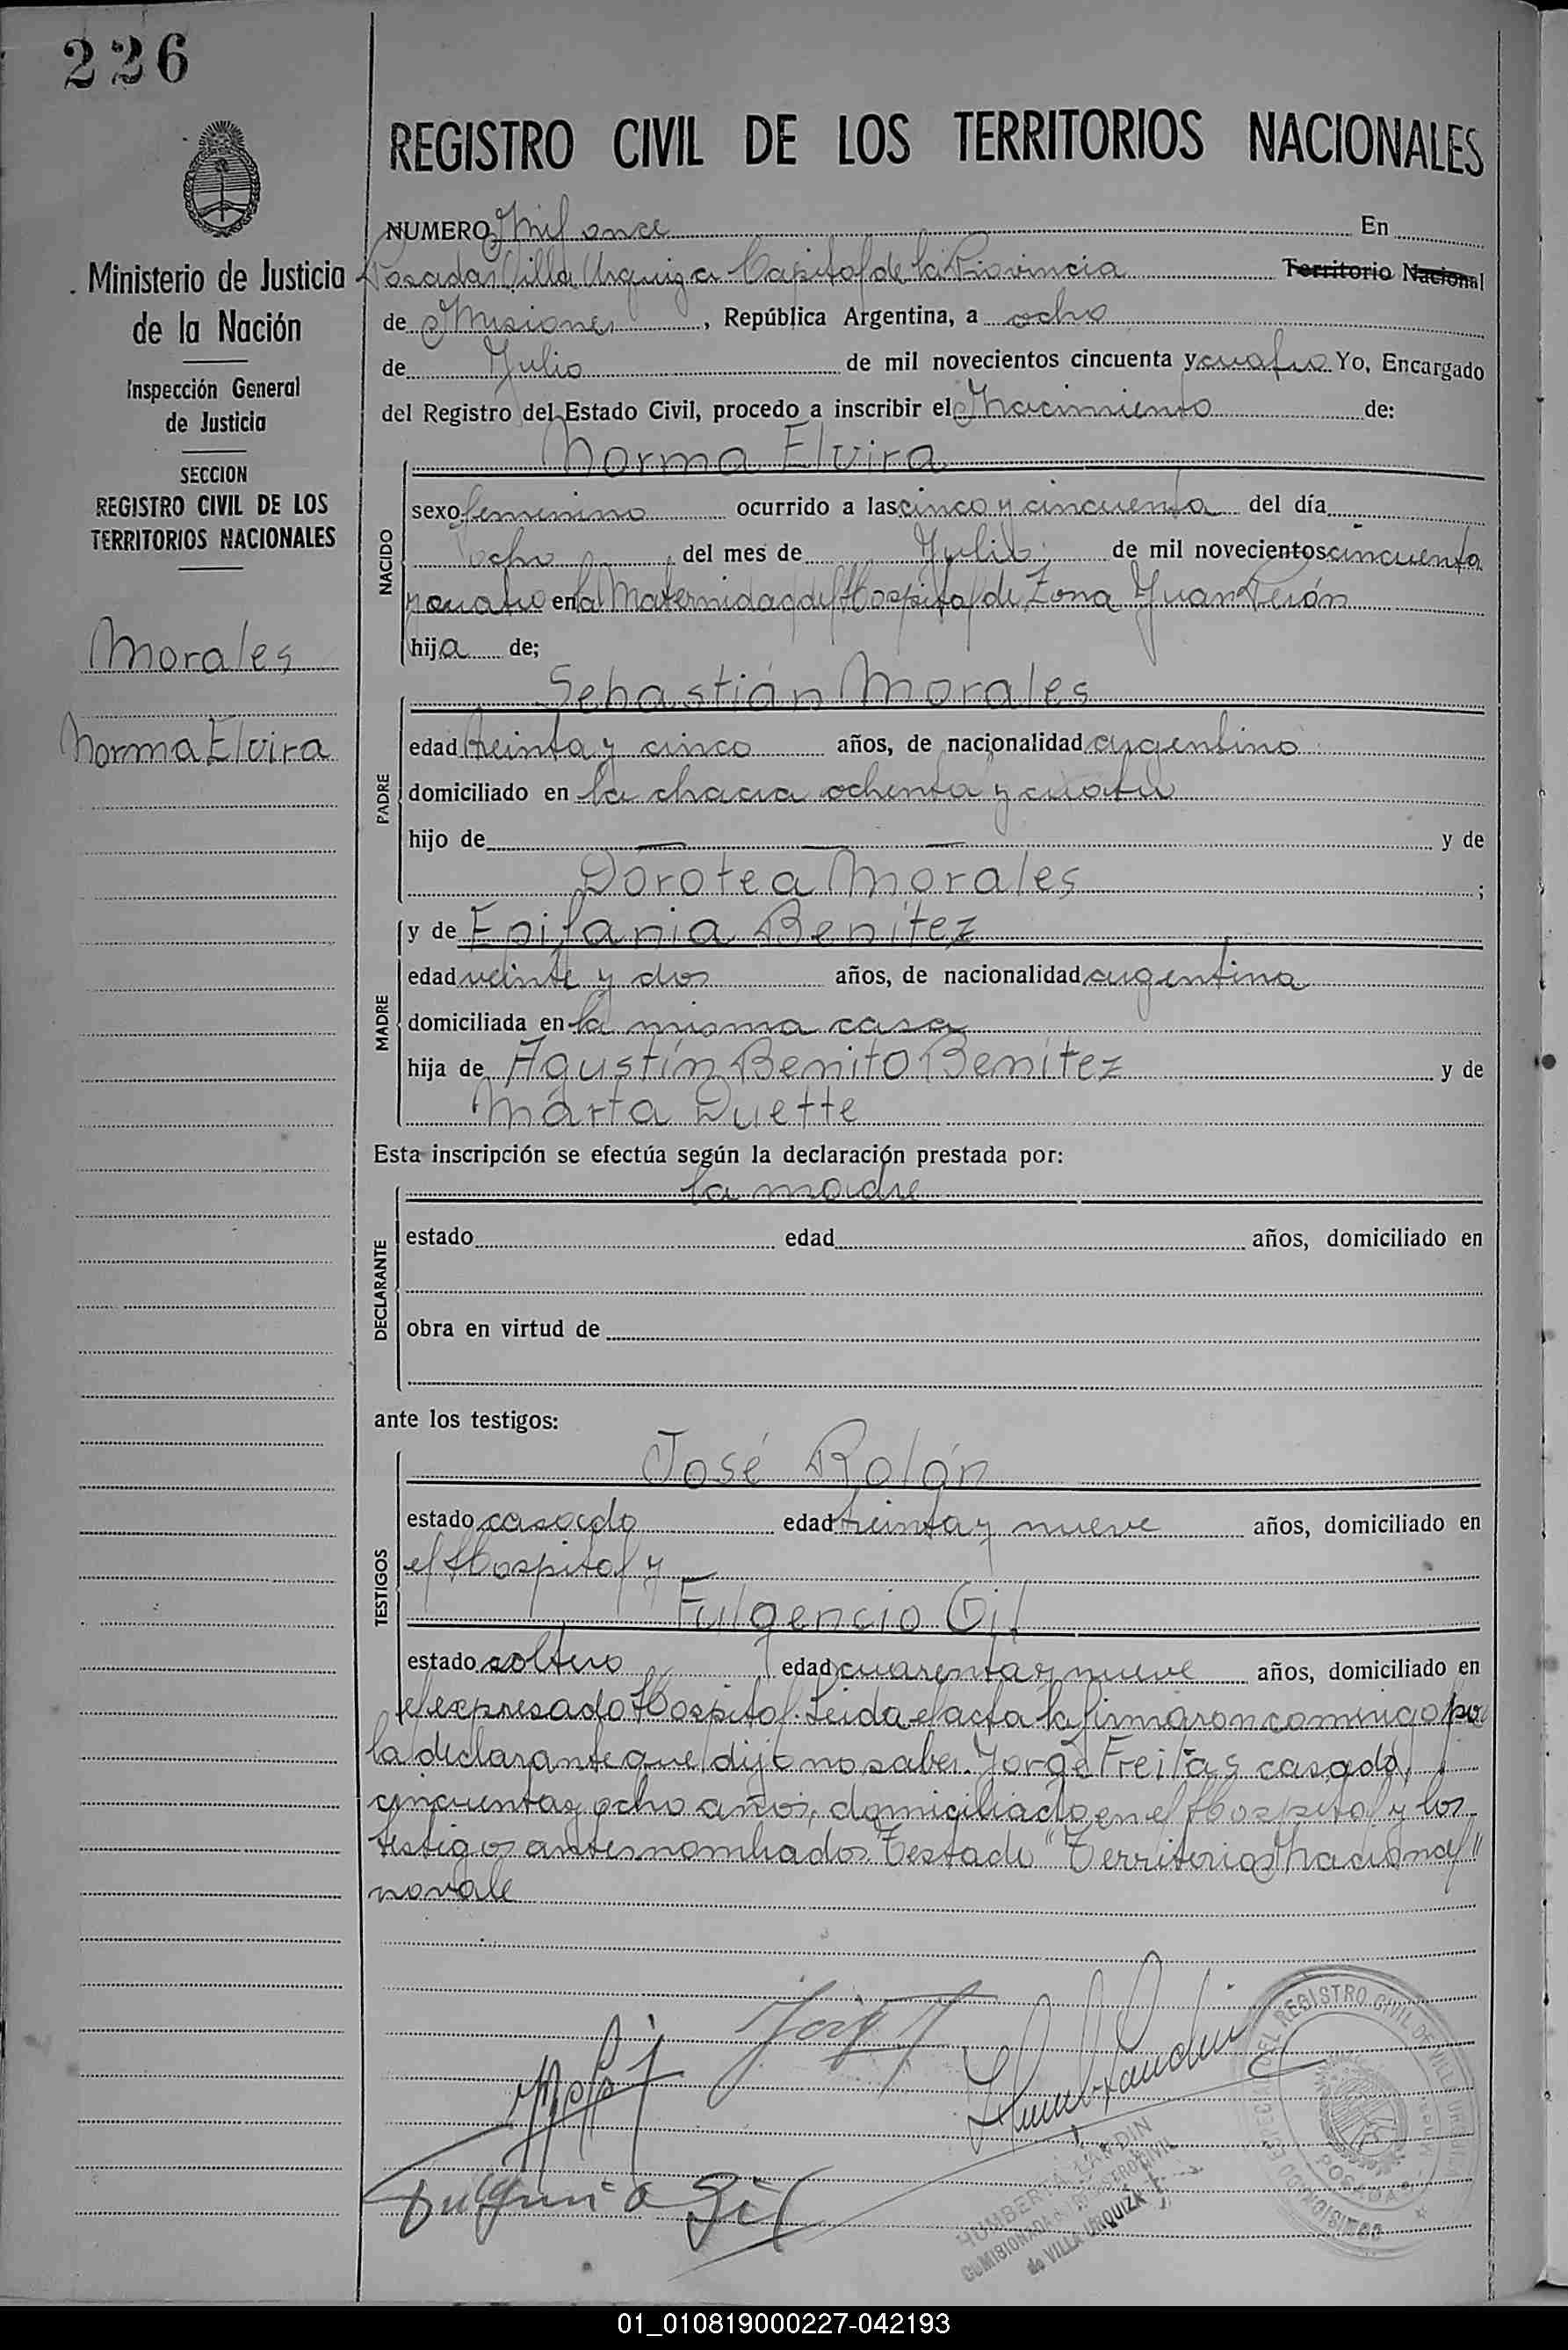 226
Ministerio de Justicia
de la Nación
Inspección General
de Justicia
SECCION
REGISTRO CIVIL DE LOS
TERRITORIOS NACIONALES
Morales
Norma Elvira
REGISTRO CIVIL DE LOS TERRITORIOS NACIONALES
NUMERO Mil once En
Posadas Villa Urquiza Capital de la Provincia Territorio Nacional
de Misiones, República Argentina, a ocho
de Julio de mil novecientos cincuenta y cuatro Yo, Encargado
del Registro del Estado Civil, procedo a inscribir el Nacimiento de:
Norma Elvira
NACIDO
sexo femenino ocurrido a las cinco y cincuenta del día
ocho del mes de Julio de mil novecientos cincuenta
y cuatro en la Maternidad del Hospital de Zona Juan Perón
hija de;
Sebastián Morales
PADRE
edad treinta y cinco años, de nacionalidad argentino
domiciliado en la chacra ochenta y cuatro
hijo de y de
Dorotea Morales;
y de Epifania Benítez
MADRE
edad veinte y dos años, de nacionalidad argentina
domiciliada en la misma casa
hija de Agustín Benito Benítez y de
Marta Duette
Esta inscripción se efectúa según la declaración prestada por:
la madre
DECLARANTE
estado edad años, domiciliado en
obra en virtud de
ante los testigos:
José Rolón
TESTIGOS
estado casado edad treinta y nueve años, domiciliado en
el Hospital y
Fulgencio Gil
estado soltero edad cuarenta y nueve años, domiciliado en
el expresado Hospital. Leida el acta la firmaron conmigo por
la declarante que dijo no saber. Jorge Freitas casado,
cincuenta y ocho años, domiciliado en el Hospital y los
testigos antes nombrados Testado "Territorio Nacional"
no vale
Fulgencio Gil
HUMBERTO LANDIN
COMISIONADO REGISTRO CIVIL
de VILLA URQUIZA
DEL REGISTRO CIVIL DE VILLA URQUIZA
POSADAS
01_010819000227-042193